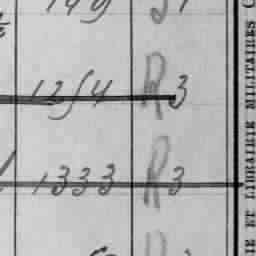 1254 R3
1333 R3
IE ET LIBRAIRIE MILITAIRES